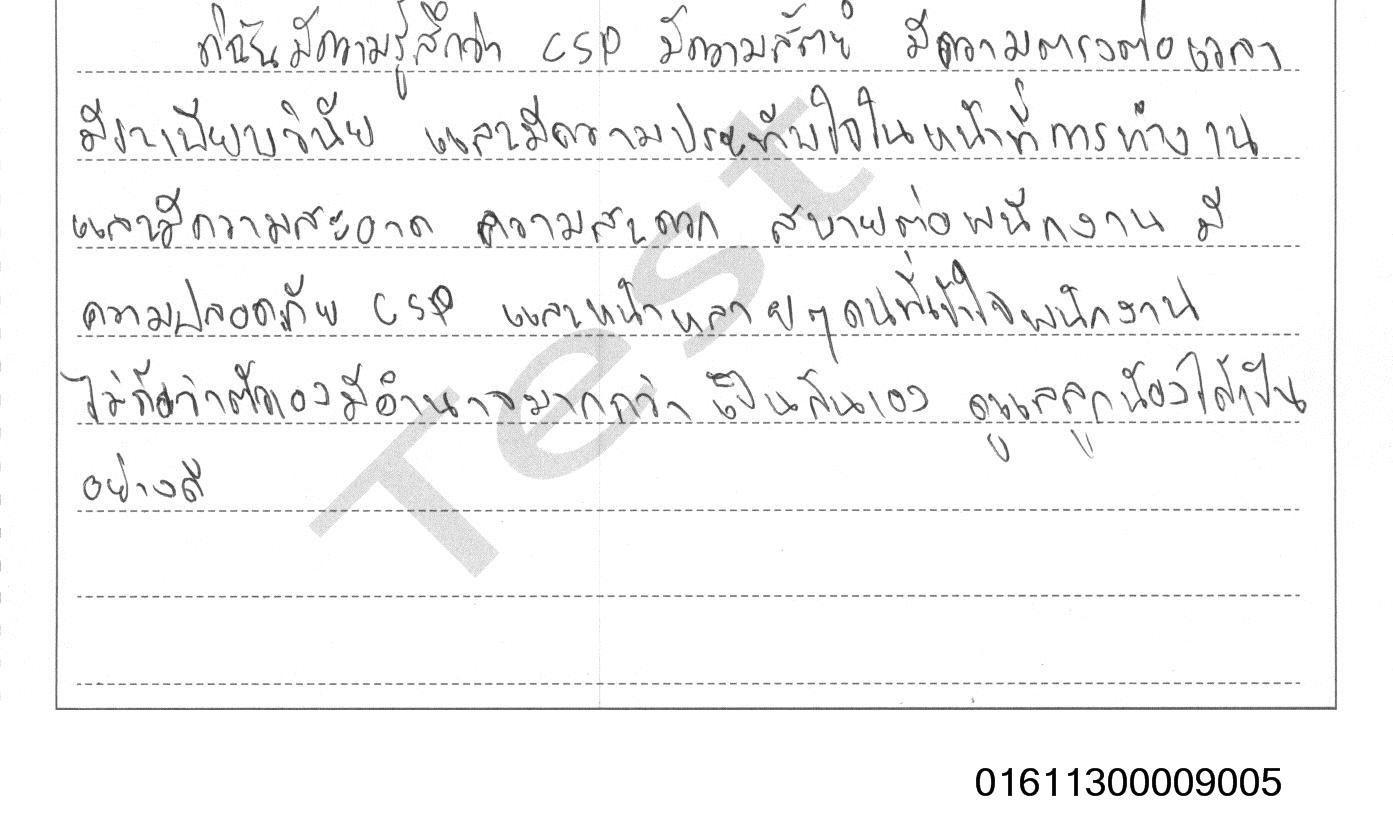 ดิฉันมีความรู้สึกว่า CSP มีความสัตย์ มีความตรงต่อเวลา
มีระเบียบวินัย และมีความประทับใจในหน้าที่การทำงาน
และมีความสะอาด ความสะดวก สบายต่อพนักงาน มี
ความปลอดภัย CSP และหน้าหลายๆคนที่เข้าใจพนักงาน
ไม่ถือว่าตัวเองมีอำนาจมากกว่า เป็นกันเอง ดูแลลูกน้องได้เป็น
อย่างดี
Test
01611300009005